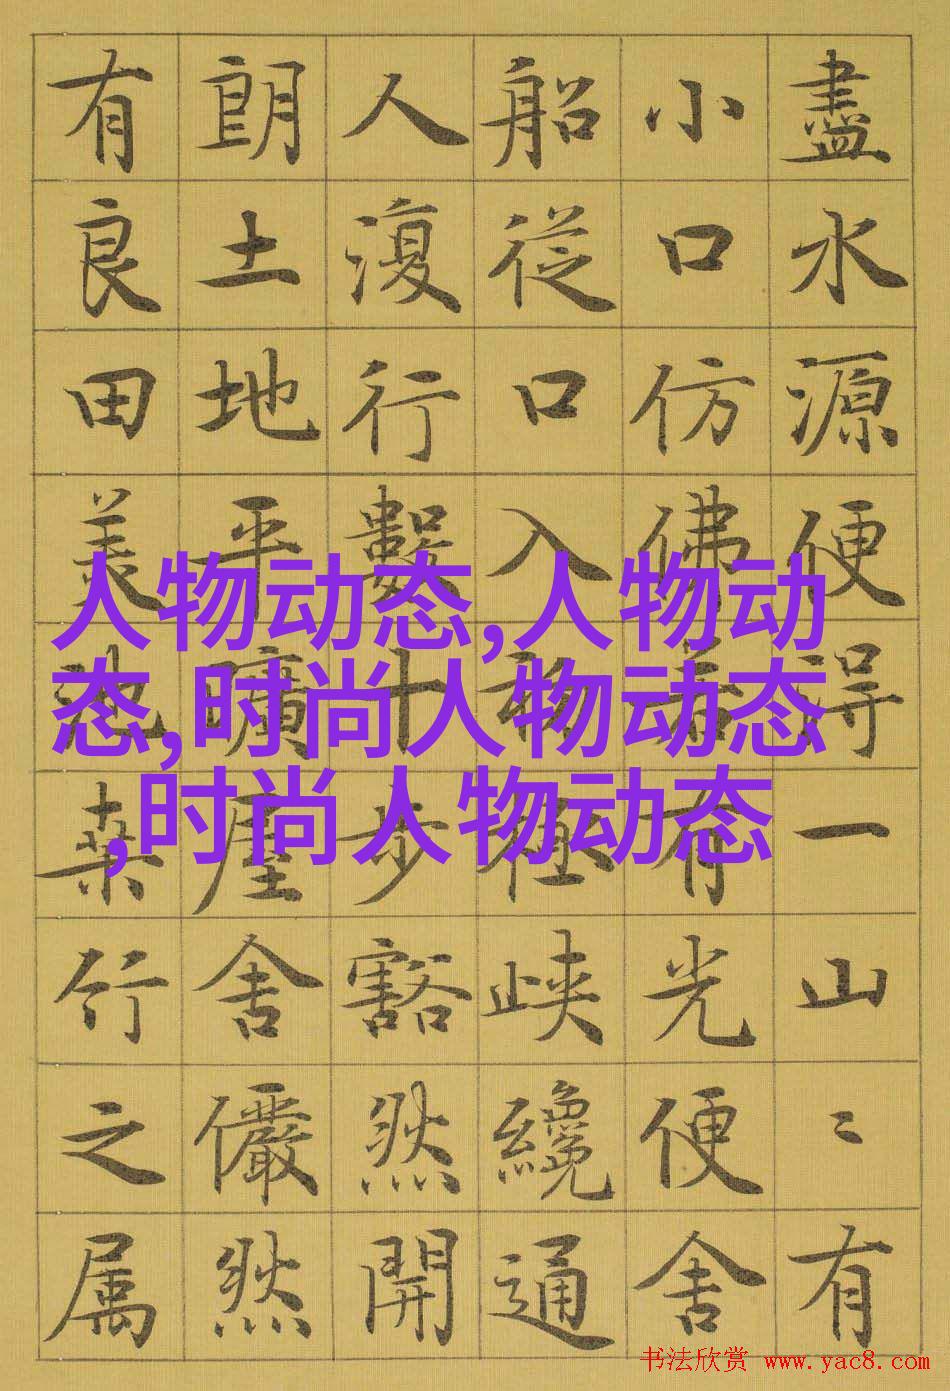 盡水源便得一山〻有
小口仿佛若有光便舍
船從口入初極峽纔通
人復行數十步豁然開
朗土地平曠屋舍儼然
有良田美池桑竹之属
人物动态,人物动
态,时尚人物动态
,时尚人物动态
书法欣赏 www.yac8.com